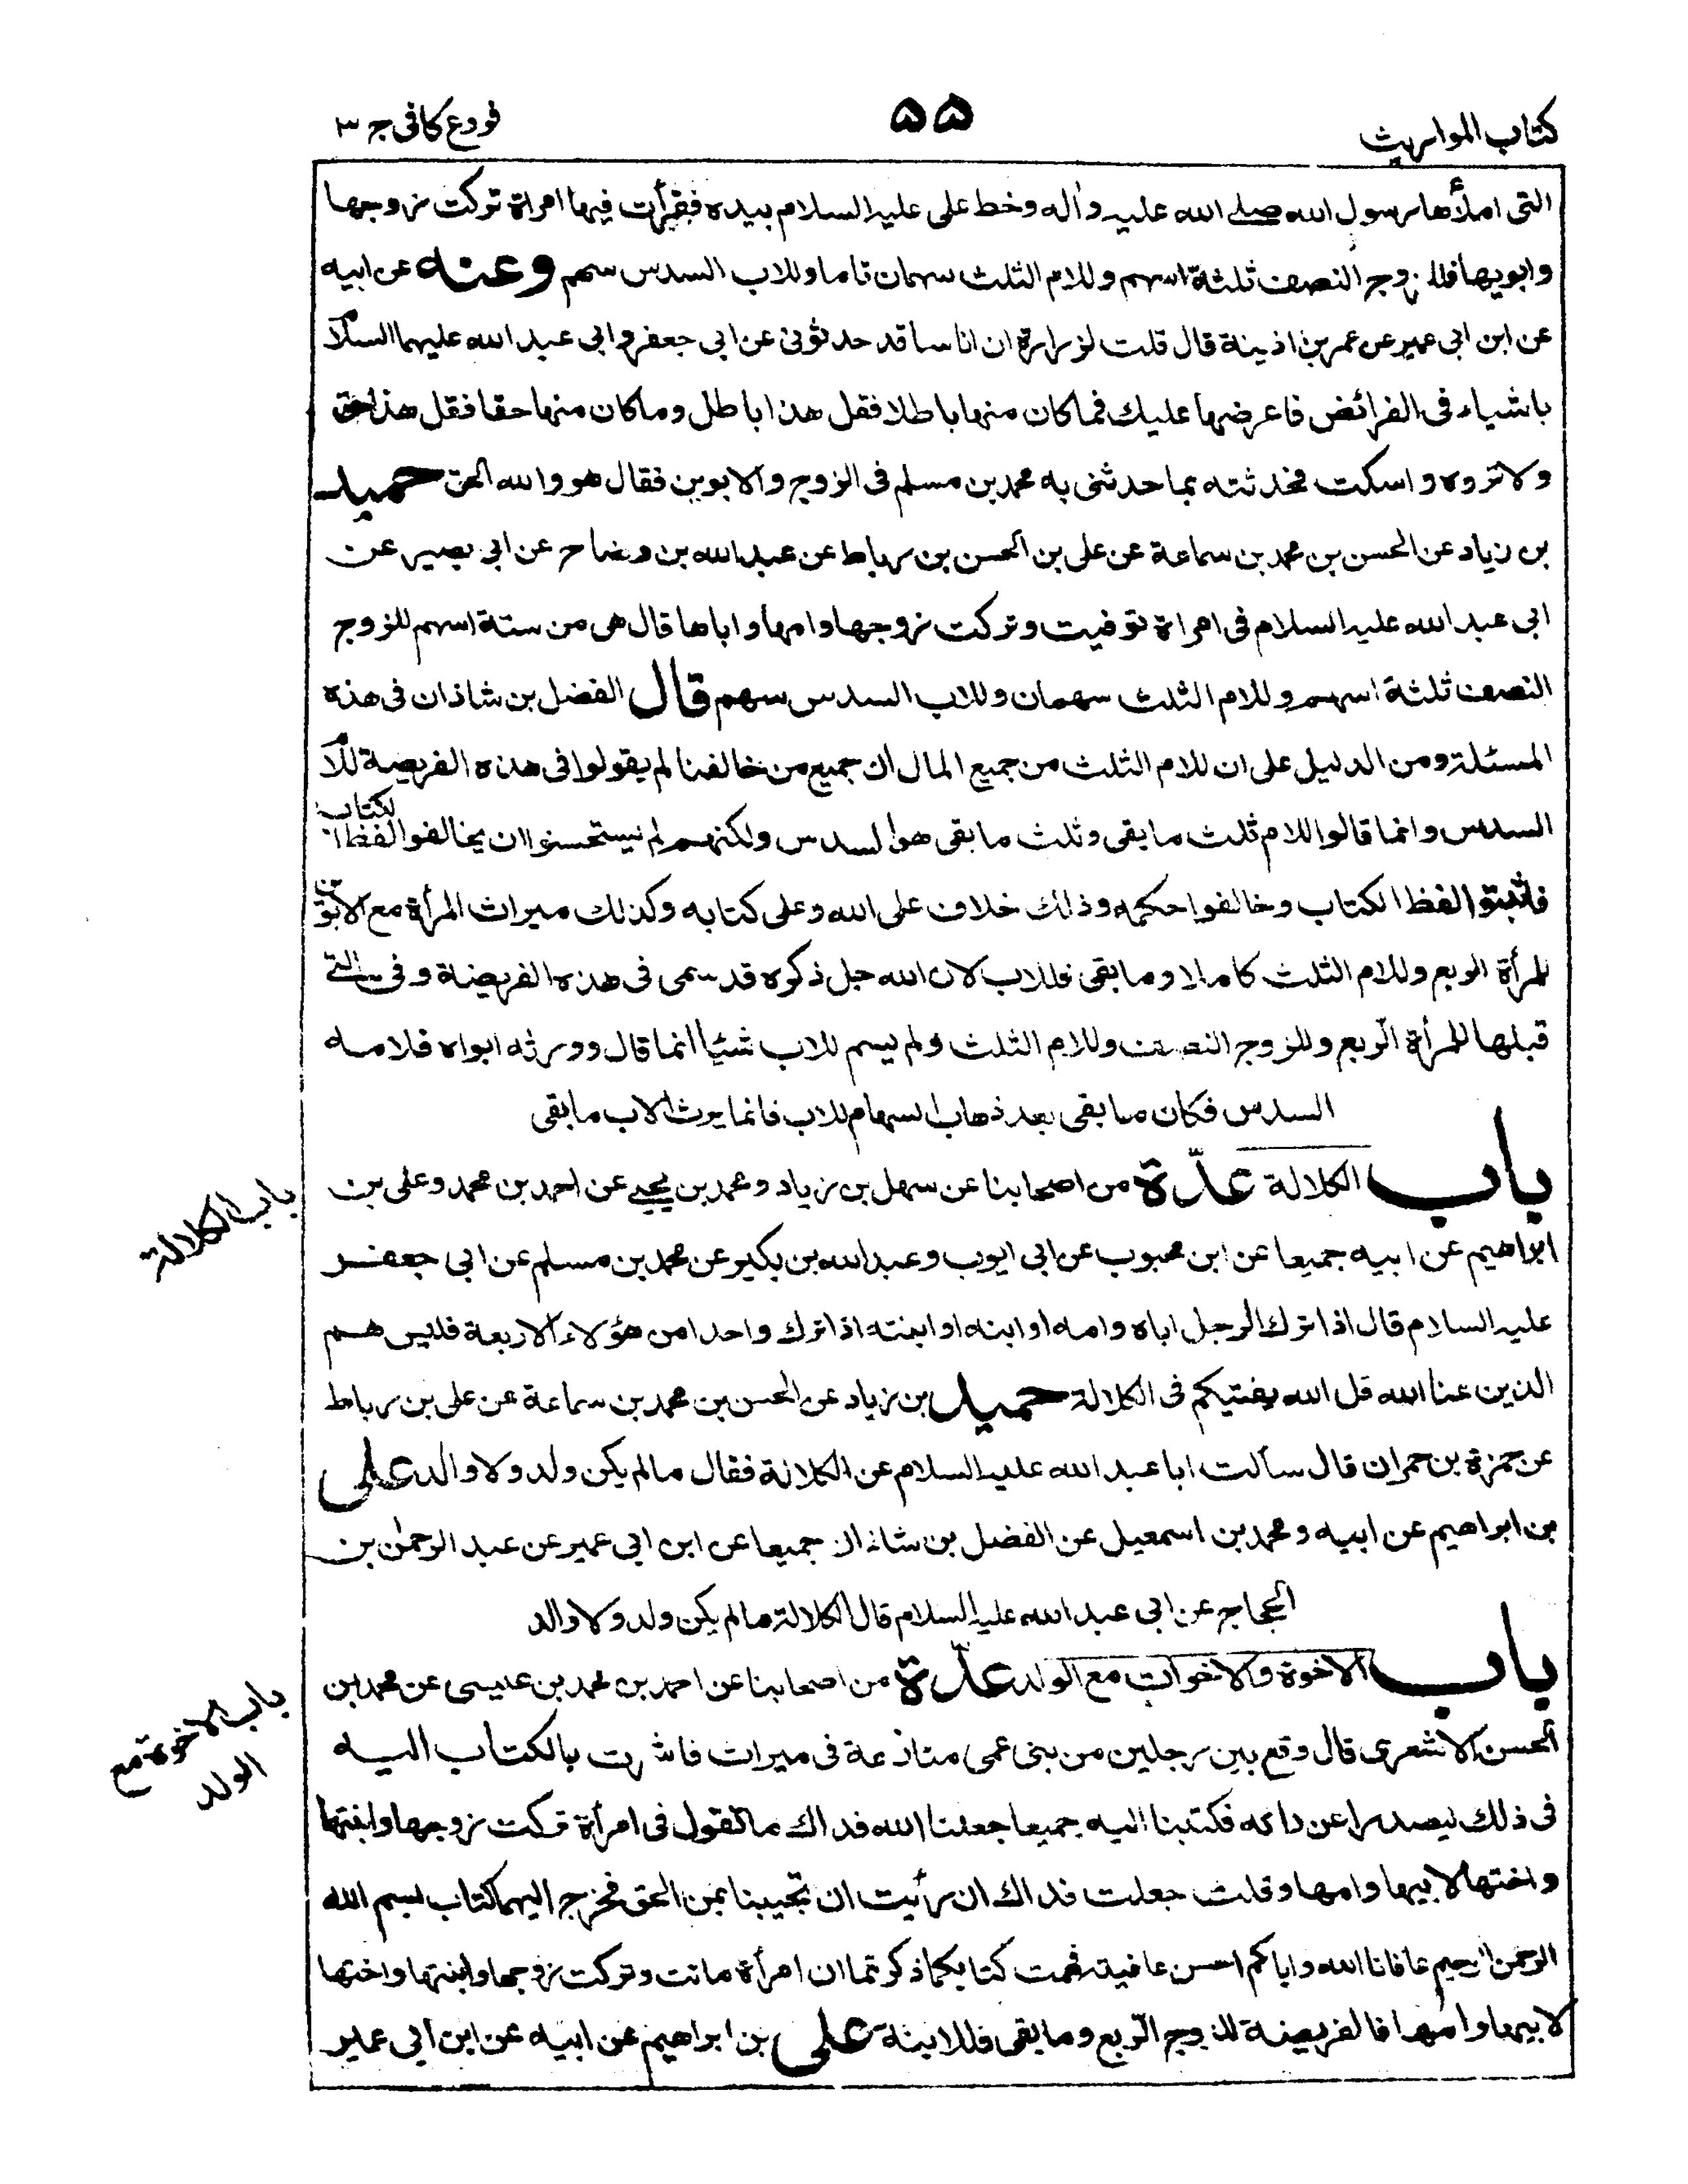 كتاب المواريث
۵۵
فروع كافى ج ۳
التى املأها رسول الله صلى الله عليه واله وخط على عليه السلام بيده فقرأت فيها امراة تركت زوجها
وابويها فللزوج النصف ثلثة اسهم وللام الثلث سهمان تاما وللاب السدس سهم وعنه عن ابيه
عن ابن ابى عمير عن عمر بن اذينة قال قلت لزرارة ان اناسا قد حدثونى عن ابى جعفر وابى عبد الله عليهما السلام
باشياء فى الفرائض فاعرضها عليك فما كان منها باطلا فقل هذا باطل وما كان منها حقا فقل هذا حق
ولا تروه واسكت فحدثته بما حدثنى به محمد بن مسلم فى الزوج والابوين فقال هو والله الحق حميد
بن زياد عن الحسن بن محمد بن سماعة عن على بن الحسن بن رباط عن عبد الله بن وضاح عن ابى بصير عن
ابى عبد الله عليه السلام فى امراة توفيت وتركت زوجها وامها واباها قال هى من ستة اسهم للزوج
النصف ثلثة اسهم وللام الثلث سهمان وللاب السدس سهم قال الفضل بن شاذان فى هذه
المسئلة ومن الدليل على ان للام الثلث من جميع المال ان جميع من خالفنا لم يقولوا فى هذه الفريضة للام
السدس وانما قالوا للام ثلث ما بقى وثلث ما بقى هو السدس ولكنهم لم يستحسنوا ان يخالفوا لفظ الكتاب
فاثبتوا لفظ الكتاب وخالفوا حكمه وذلك خلاف على الله وعلى كتابه وكذلك ميراث المرأة مع الابوين
للمرأة الربع وللام الثلث كاملا وما بقى فللاب لان الله جل ذكره قد سمى فى هذه الفريضة وفى التى
قبلها للمرأة الربع وللزوج النصف وللام الثلث ولم يسم للاب شيئا انما قال وورثه ابواه فلامه
السدس فكان ما بقى بعد ذهاب السهام للاب فانما يرث الاب ما بقى
باب الكلالة عدّة من اصحابنا عن سهل بن زياد ومحمد بن يحيى عن احمد بن محمد وعلى بن
باب الكلالة
ابراهيم عن ابيه جميعا عن ابن محبوب عن ابى ايوب وعبد الله بن بكير عن محمد بن مسلم عن ابى جعفر
عليه السلام قال اذا ترك الرجل اباه وامه او ابنه او ابنته اذا ترك واحدا من هؤلاء الاربعة فليس هم
الذين عنا الله قل الله يفتيكم فى الكلالة حميد بن زياد عن الحسن بن محمد بن سماعة عن على بن رباط
عن حمزة بن حمران قال سألت ابا عبد الله عليه السلام عن الكلالة فقال ما لم يكن ولد ولا والد على
بن ابراهيم عن ابيه ومحمد بن اسمعيل عن الفضل بن شاذان جميعا عن ابن ابى عمير عن عبد الرحمن بن
الحجاج عن ابى عبد الله عليه السلام قال الكلالة ما لم يكن ولد ولا والد
باب الاخوة والاخوات مع الولد عدّة من اصحابنا عن احمد بن محمد بن عيسى عن محمد بن
باب الاخوة مع
الولد
الحسن الاشعرى قال وقع بين رجلين من بنى عمى منازعة فى ميراث فاشرت بالكتاب اليه
فى ذلك ليصدرا عن رايه فكتبنا اليه جميعا جعلنا الله فداك ما تقول فى امرأة تركت زوجها وابنتها
واختها لابيها وامها وقلت جعلت فداك ان رأيت ان تجيبنا بمن الحق فخرج اليهما كتاب بسم الله
الرحمن الرحيم عافانا الله واياكم احسن عافية فهمت كتابكما ذكرتما ان امرأة ماتت وتركت زوجها وابنتها واختها
لابيها وامها فالفريضة للزوج الربع وما بقى فللابنة على بن ابراهيم عن ابيه عن ابن ابى عمير